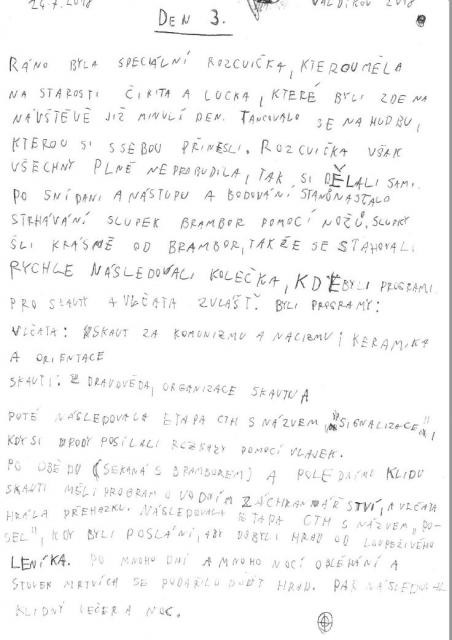 24.7.2018 VALDÍKOV 2018
DEN 3.
RÁNO BYLA SPECIÁLNÍ ROZCVIČKA, KTEROU MĚLA
NA STAROSTI ČIKITA A LUCKA, KTERÉ BYLI ZDE NA
NÁVŠTĚVĚ JIŽ MINULÍ DEN. TANCOVALO SE NA HUDBU,
KTEROU SI SSEBOU PŘINESLI. ROZCVIČKA VŠAK
VŠECHNY PLNĚ NEPROBUDILA, TAK SI DĚLALI SAMI.
PO SNÍDANI A NÁSTUPU A BODOVÁNÍ STANŮ NASTALO
STRHÁVÁNÍ SLUPEK BRAMBOR POMOCÍ NOŽŮ. SLUPKY
ŠLI KRÁSNĚ OD BRAMBOR, TAKŽE SE STAHOVALI
RYCHLE NÁSLEDOVALI KOLEČKA, KDE BYLI PROGRAMI
PRO SKAUTY A VLČATA ZVLÁŠŤ. BYLI PROGRAMY:
VLČATA: SKAUT ZA KOMUNIZMU A NACIZMU, KERAMIKA
A ORIENTACE
SKAUTI: ZDRAVOVĚDA, ORGANIZACE SKAUTU
POTÉ NÁSLEDOVALA ETAPA CTH S NÁZVEM „SIGNALIZACE",
KDY SI POSÍLALI ROZKAZY POMOCÍ VLAJEK.
PO OBĚDU (SEKANÁ S BRAMBOREM) A POLEDNÍMU KLIDU
SKAUTI MĚLI PROGRAM O VODNÍM ZÁCHRANÁŘSTVÍ, A VLČATA
HRÁLA PŘEHAZKU. NÁSLEDOVALA ETAPA CTH S NÁZVEM „PO-
SEL", KDY BYLI POSLÁNI, ABY DOBYLI HRAD OD LOUPEŽIVÉHO
LENÍKA. PO MNOHO DNÍ A MNOHO NOCÍ OBLÉHÁNÍ A
STOVEK MRTVÍCH SE PODAŘILO DOBÝT HRAD. PAK NÁSLEDOVAL
KLIDNÝ VEČER A NOC.